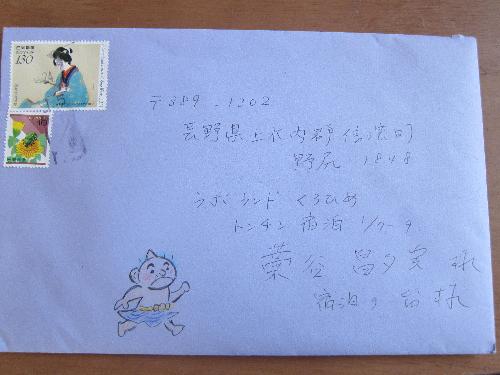 130
〒389-1302
長野県上水内郡信濃町
野尻 1848
ラボランドくろひめ
トンチン宿泊 1/7-9
葉谷 昌夕実 様
宿泊の皆様